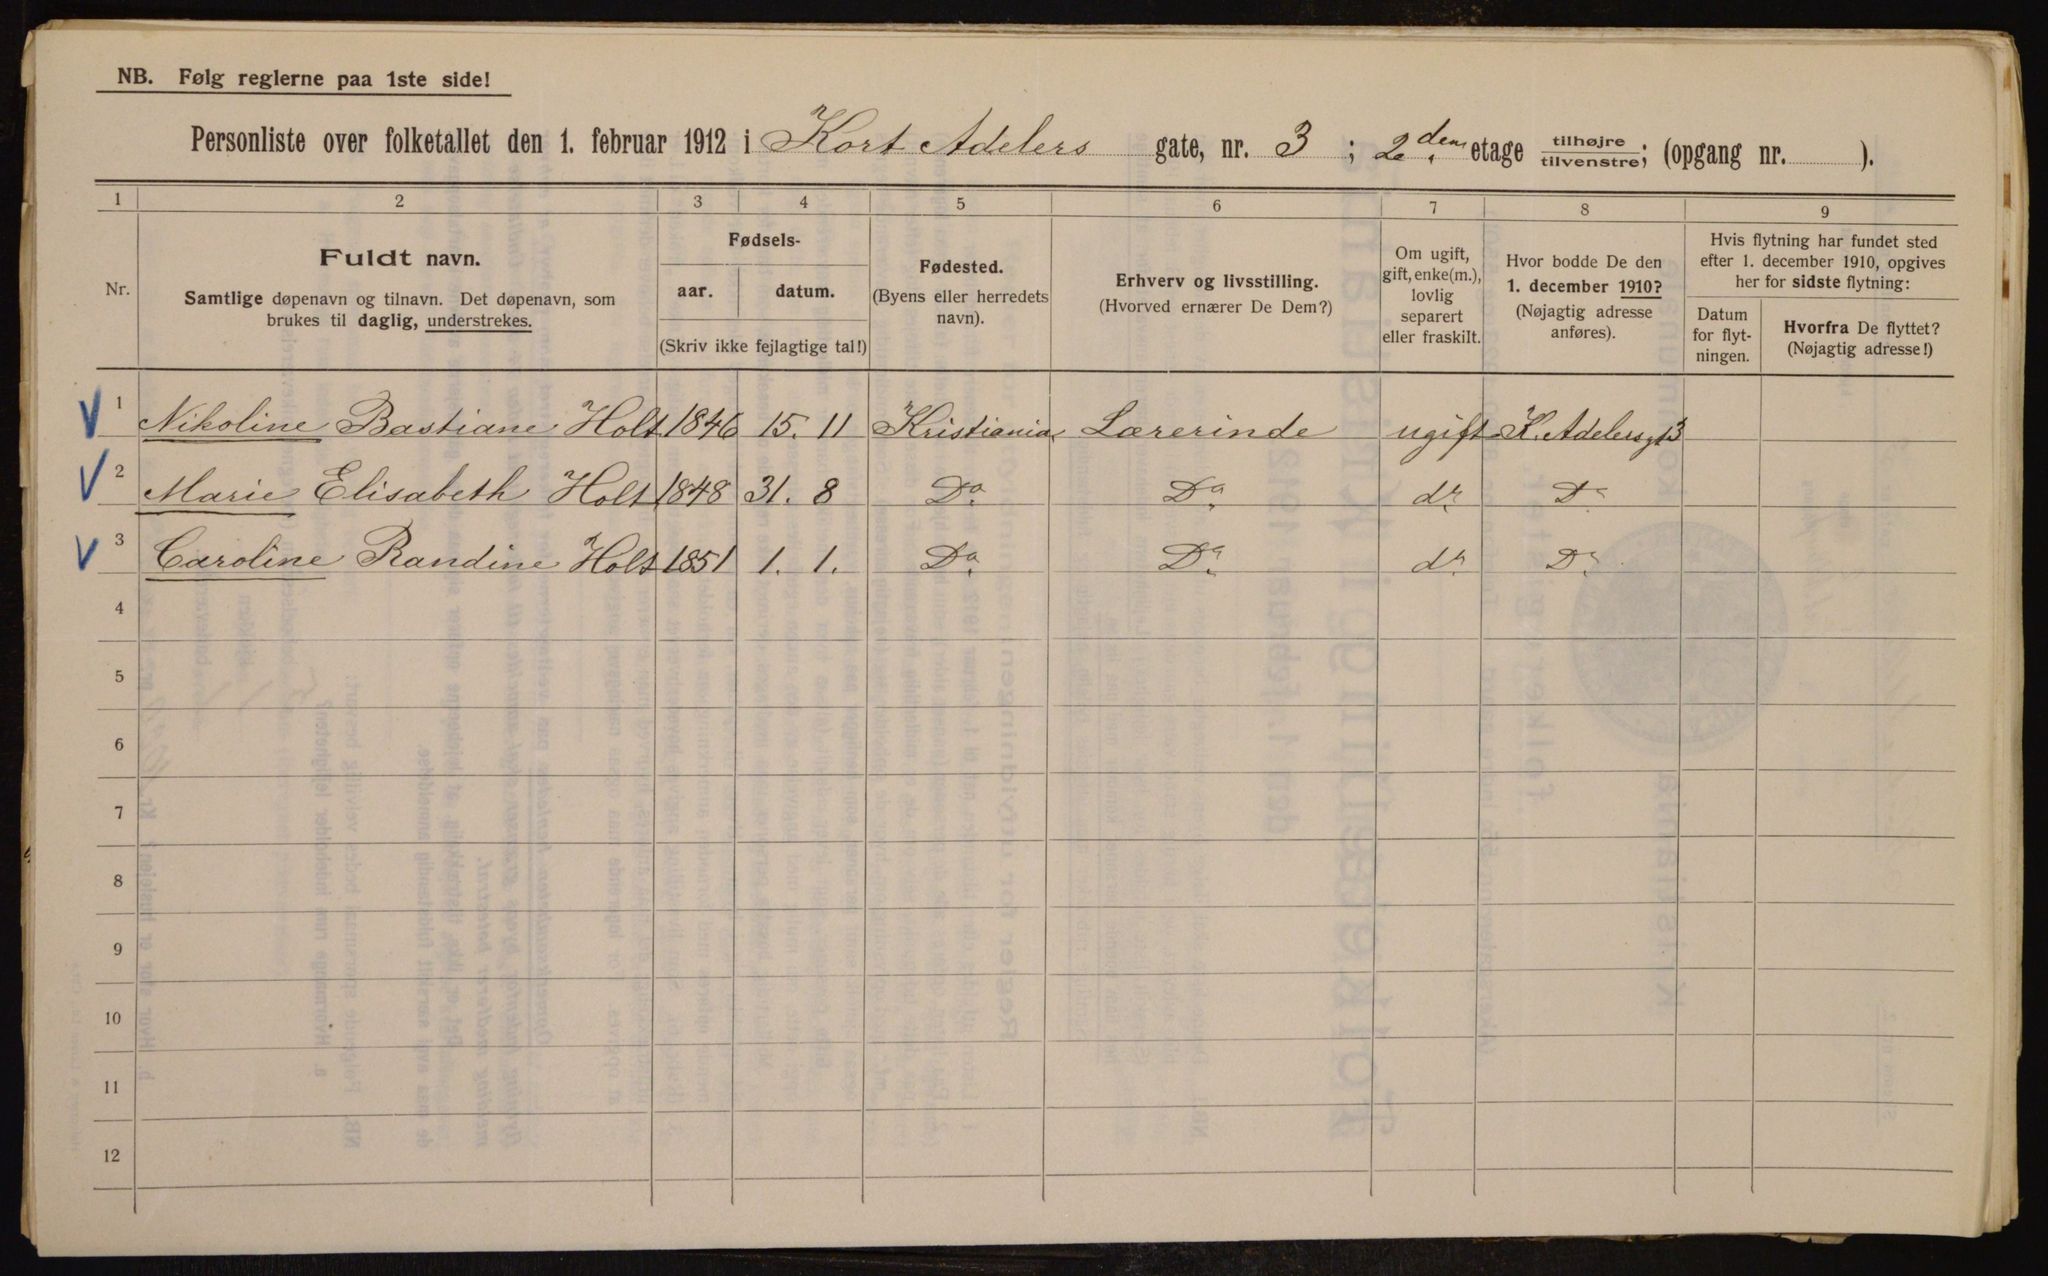 NB. Følg reglerne paa 1ste side!
Personliste over folketallet den 1. februar 1912 i Kort Adelers gate, nr. 3 ; 2dem etage tilhøjre tilvenstre; (opgang nr. ).
1 2 3 4 5 6 7 8 9
Nr.
Fuldt navn.
Samtlige døpenavn og tilnavn. Det døpenavn, som
brukes til daglig, understrekes.
Fødsels-
aar. datum.
(Skriv ikke fejlagtige tal!)
Fødested.
(Byens eller herredets
navn).
Erhverv og livsstilling.
(Hvorved ernærer De Dem?)
Om ugift,
gift, enke(m.),
lovlig
separert
eller fraskilt.
Hvor bodde De den
1. december 1910?
(Nøjagtig adresse
anføres).
Hvis flytning har fundet sted
efter 1. december 1910, opgives
her for sidste flytning:
Datum
for flyt-
ningen.
Hvorfra De flyttet?
(Nøjagtig adresse!)
1 Nikoline Bastiane Holt 1846 15. 11 Kristiania Lærerinde ugift K. Adelersgt 3
2 Marie Elisabeth Holt 1848 31. 8 Do. Do. do. Do.
3 Caroline Randine Holt 1851 1. 1. Do. Do. do. Do.
4
5
6
7
8
9
10
11
12